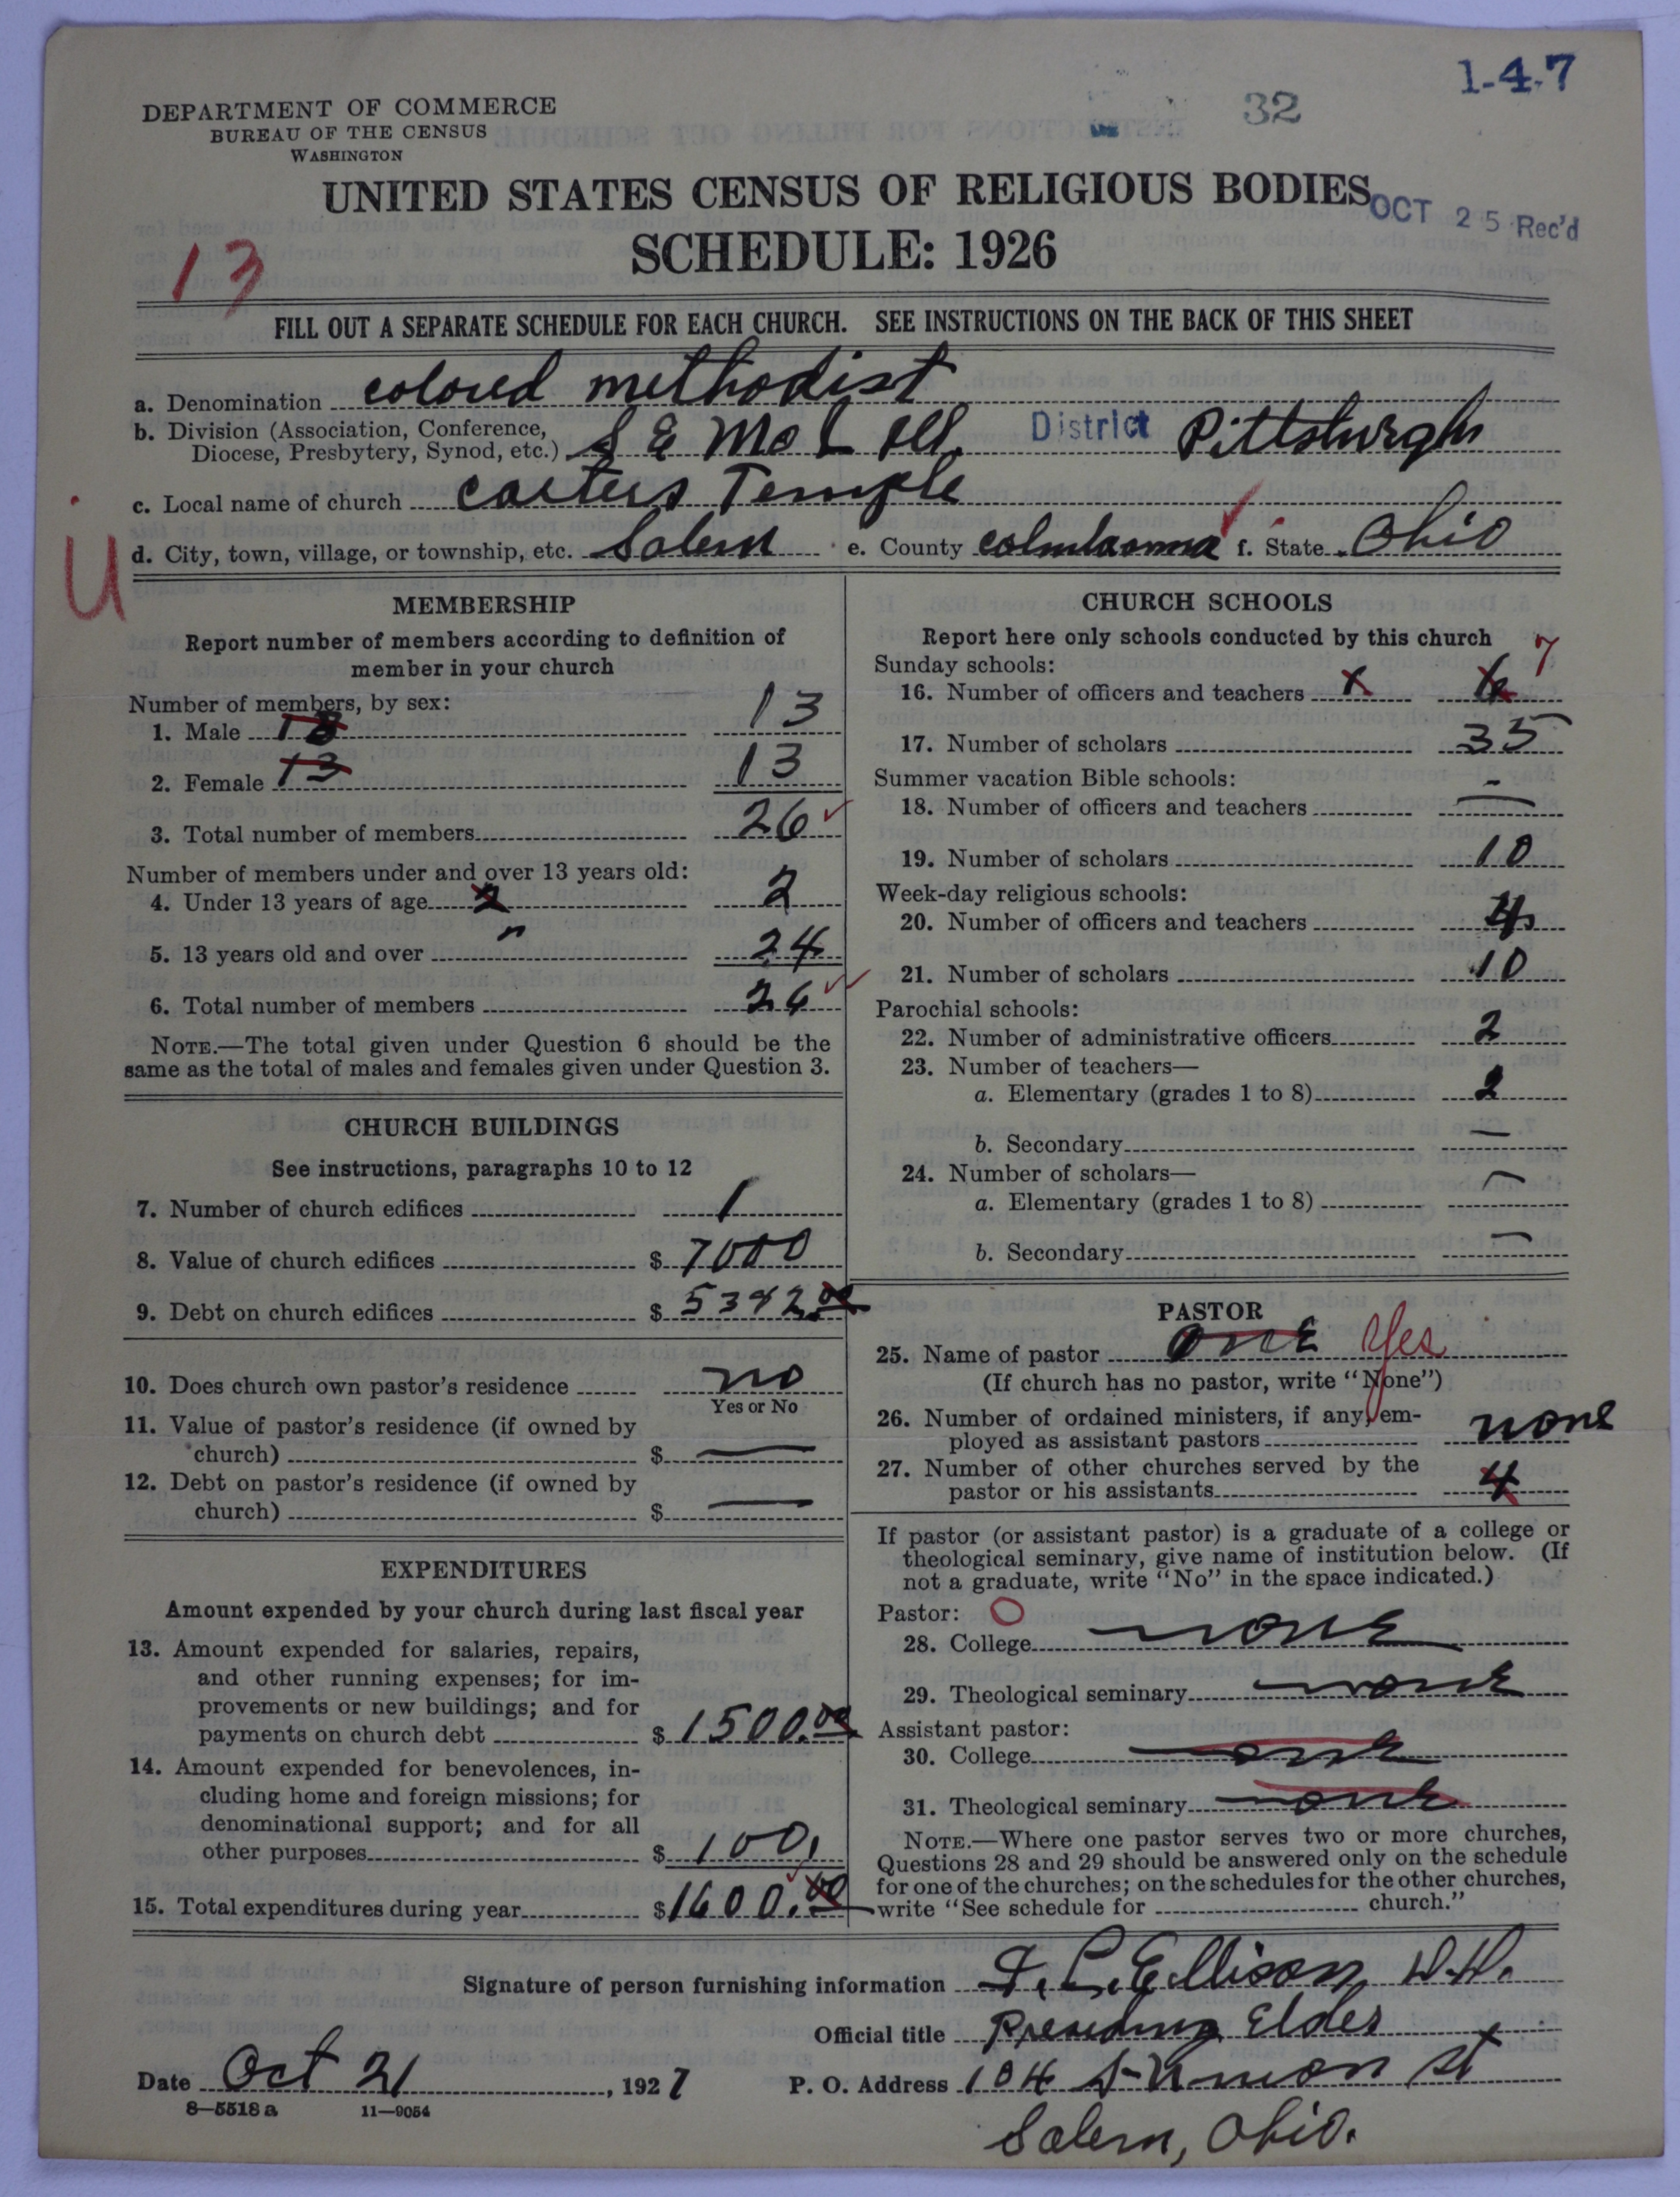 1-4-7
32
DEPARTMENT OF COMMERCE
BUREAU OF THE CENSUS
WASHINGTON
UNITED STATES CENSUS OF RELIGIOUS BODIES
OCT 25 Rec'd
SCHEDULE: 1926
13
FILL OUT A SEPARATE SCHEDULE FOR EACH CHURCH. SEE INSTRUCTIONS ON THE BACK OF THIS SHEET
a. Denomination colored methodist
b. Division (Association, Conference,
Diocese, Presbytery, Synod, etc.) S E Mo & Ill. District Pittsburgh
c. Local name of church Carters Temple
d. City, town, village, or township, etc. Salem e. County f. State Ohio
U
MEMBERSHIP
Report number of members according to definition of
member in your church
Number of members, by sex:
1. Male 13 13
2. Female 13 13
3. Total number of members 26
Number of members under and over 13 years old:
4. Under 13 years of age 2 2
5. 13 years old and over 24
6. Total number of members 26
NOTE.—The total given under Question 6 should be the
same as the total of males and females given under Question 3.
CHURCH BUILDINGS
See instructions, paragraphs 10 to 12
7. Number of church edifices 1
8. Value of church edifices $ 7000
9. Debt on church edifices $ 5342.00
10. Does church own pastor's residence no
Yes or No
11. Value of pastor's residence (if owned by
church) $ —
12. Debt on pastor's residence (if owned by
church) $ —
EXPENDITURES
Amount expended by your church during last fiscal year
13. Amount expended for salaries, repairs,
and other running expenses; for im-
provements or new buildings; and for
payments on church debt $ 1500.00
14. Amount expended for benevolences, in-
cluding home and foreign missions; for
denominational support; and for all
other purposes $ 100.
15. Total expenditures during year $ 1600.00
CHURCH SCHOOLS
Report here only schools conducted by this church
Sunday schools: 7
16. Number of officers and teachers 1 6
17. Number of scholars 35
Summer vacation Bible schools: -
18. Number of officers and teachers —
19. Number of scholars 10
Week-day religious schools:
20. Number of officers and teachers 4
21. Number of scholars 10
Parochial schools:
22. Number of administrative officers 2
23. Number of teachers—
a. Elementary (grades 1 to 8) 2
b. Secondary —
24. Number of scholars—
a. Elementary (grades 1 to 8) —
b. Secondary —
PASTOR
25. Name of pastor one Yes
(If church has no pastor, write "None")
26. Number of ordained ministers, if any, em-
ployed as assistant pastors none
27. Number of other churches served by the
pastor or his assistants 4
If pastor (or assistant pastor) is a graduate of a college or
theological seminary, give name of institution below. (If
not a graduate, write "No" in the space indicated.)
Pastor: O
28. College none
29. Theological seminary none
Assistant pastor:
30. College none
31. Theological seminary none
NOTE.—Where one pastor serves two or more churches,
Questions 28 and 29 should be answered only on the schedule
for one of the churches; on the schedules for the other churches,
write "See schedule for church."
Signature of person furnishing information L. Ellison
Official title Presiding Elder
Date Oct 21, 1927 P. O. Address 104 S-Union st
8—5518a 11—9054
Salem, Ohio.